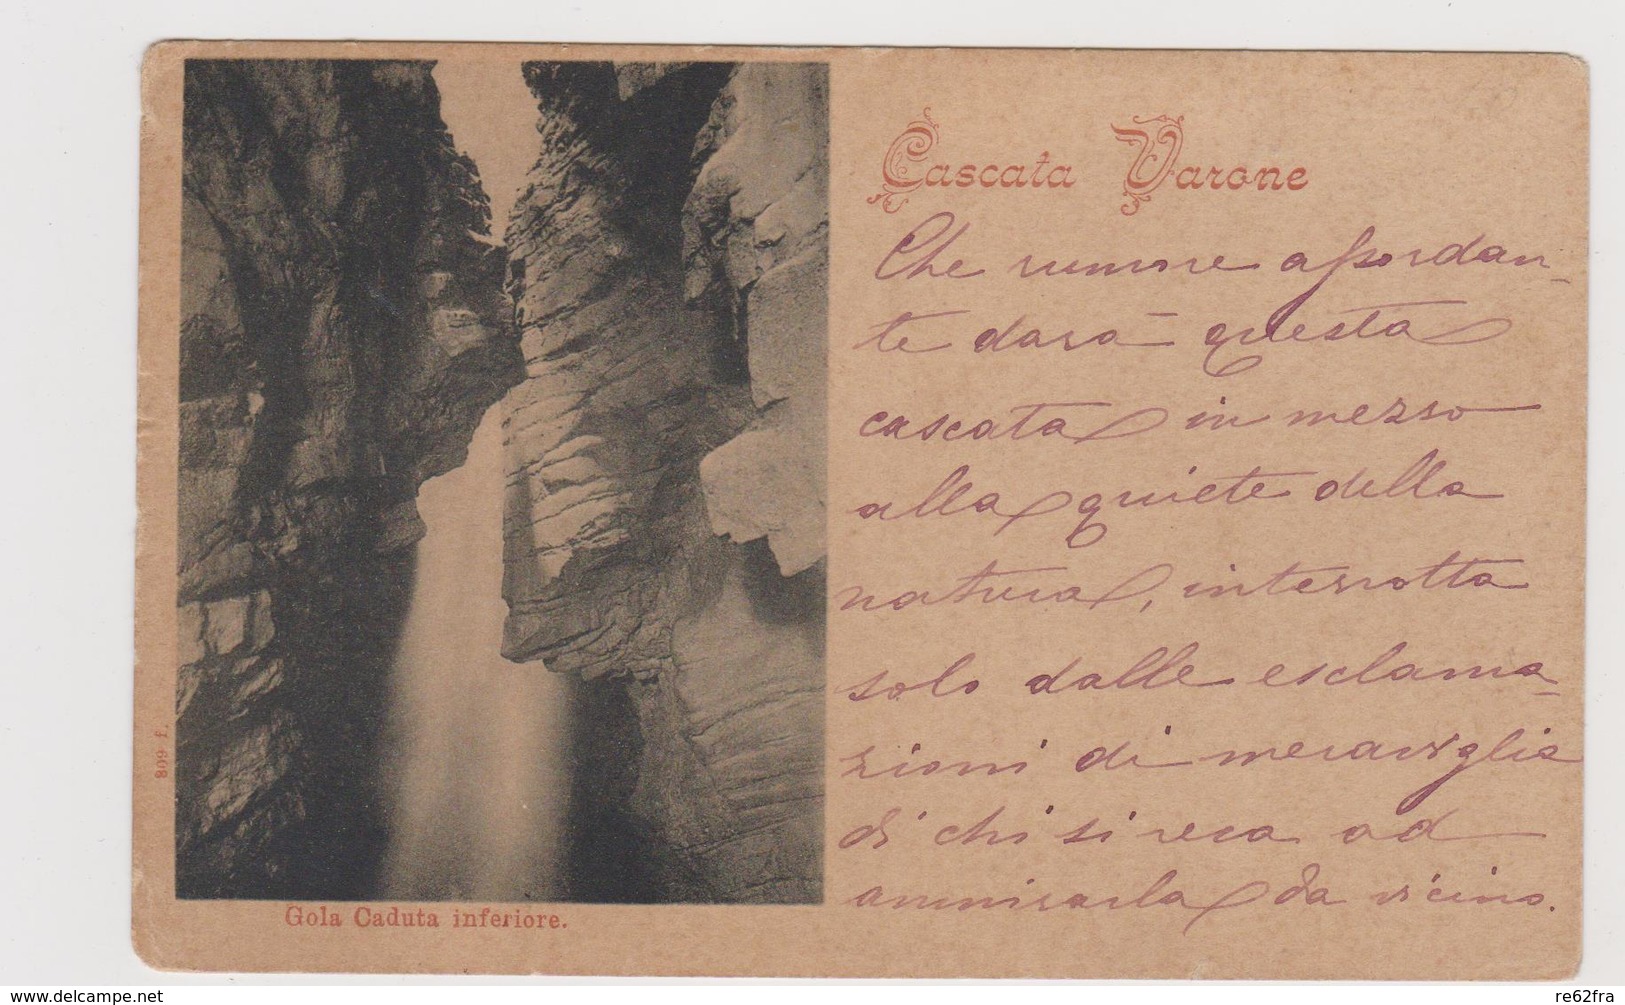 Cascata Varone
Che rumore assordan-
te darà questa
cascata in mezzo
alla quiete della
natura, interrotta
solo dalle esclama-
zioni di meraviglia
di chi si reca ad
ammirarla da vicino.
809 f.
Gola Caduta inferiore.
www.delcampe.net
re62fra